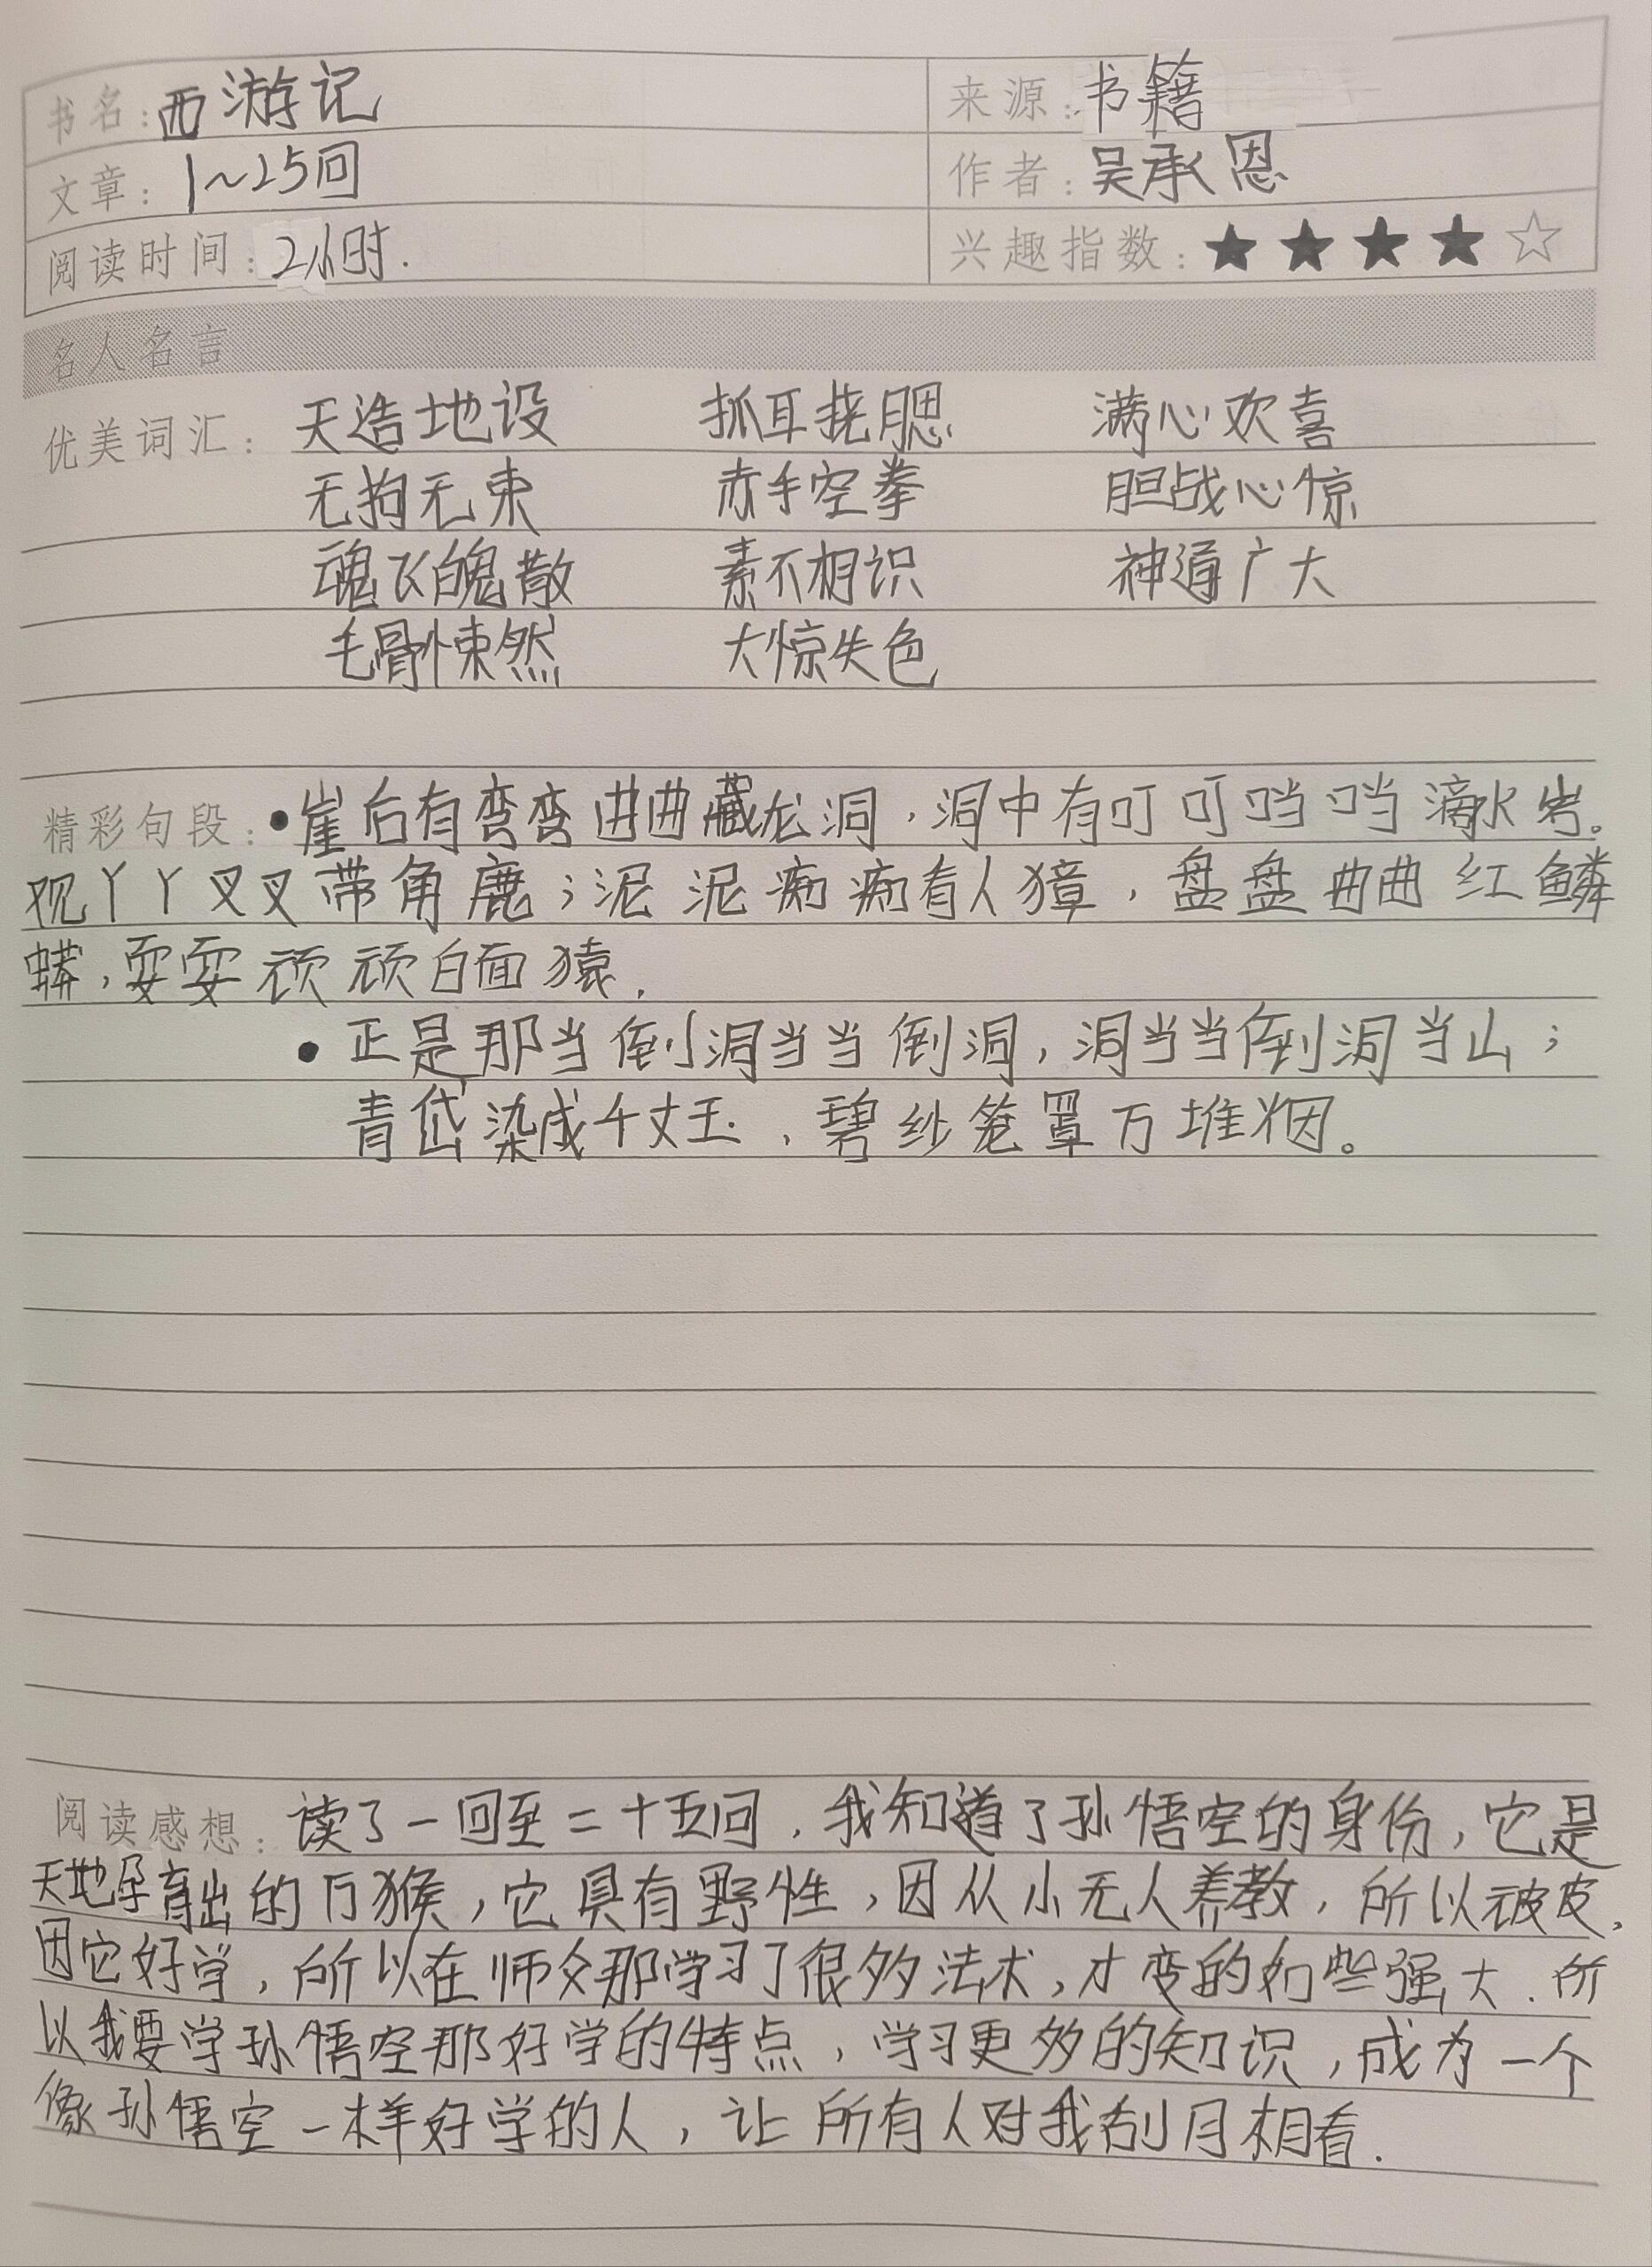 书名：西游记 来源：书籍
文章：1～25回 作者：吴承恩
阅读时间：2小时. 兴趣指数：★★★★☆
名人名言
优美词汇：天造地设 抓耳挠腮 满心欢喜
无拘无束 赤手空拳 胆战心惊
魂飞魄散 素不相识 神通广大
毛骨悚然 大惊失色
精彩句段：•崖后有弯弯曲曲藏龙洞，洞中有叮叮当当滴水岩。
观丫丫叉叉带角鹿；泥泥痴痴看人獐，盘盘曲曲红鳞
蟒，耍耍顽顽白面猿.
•正是那当倒洞当当倒洞，洞当当倒洞当山；
青岱染成千丈玉，碧纱笼罩万堆烟。
阅读感想：读了一回至二十五回，我知道了孙悟空的身份，它是
天地孕育出的猴，它具有野性，因从小无人养教，所以皮，
因它好学，所以在师父那学习了很多法术，才变的如些强大.所
以我要学孙悟空那好学的特点，学习更多的知识，成为一个
像孙悟空一样好学的人，让所有人对我刮月相看.